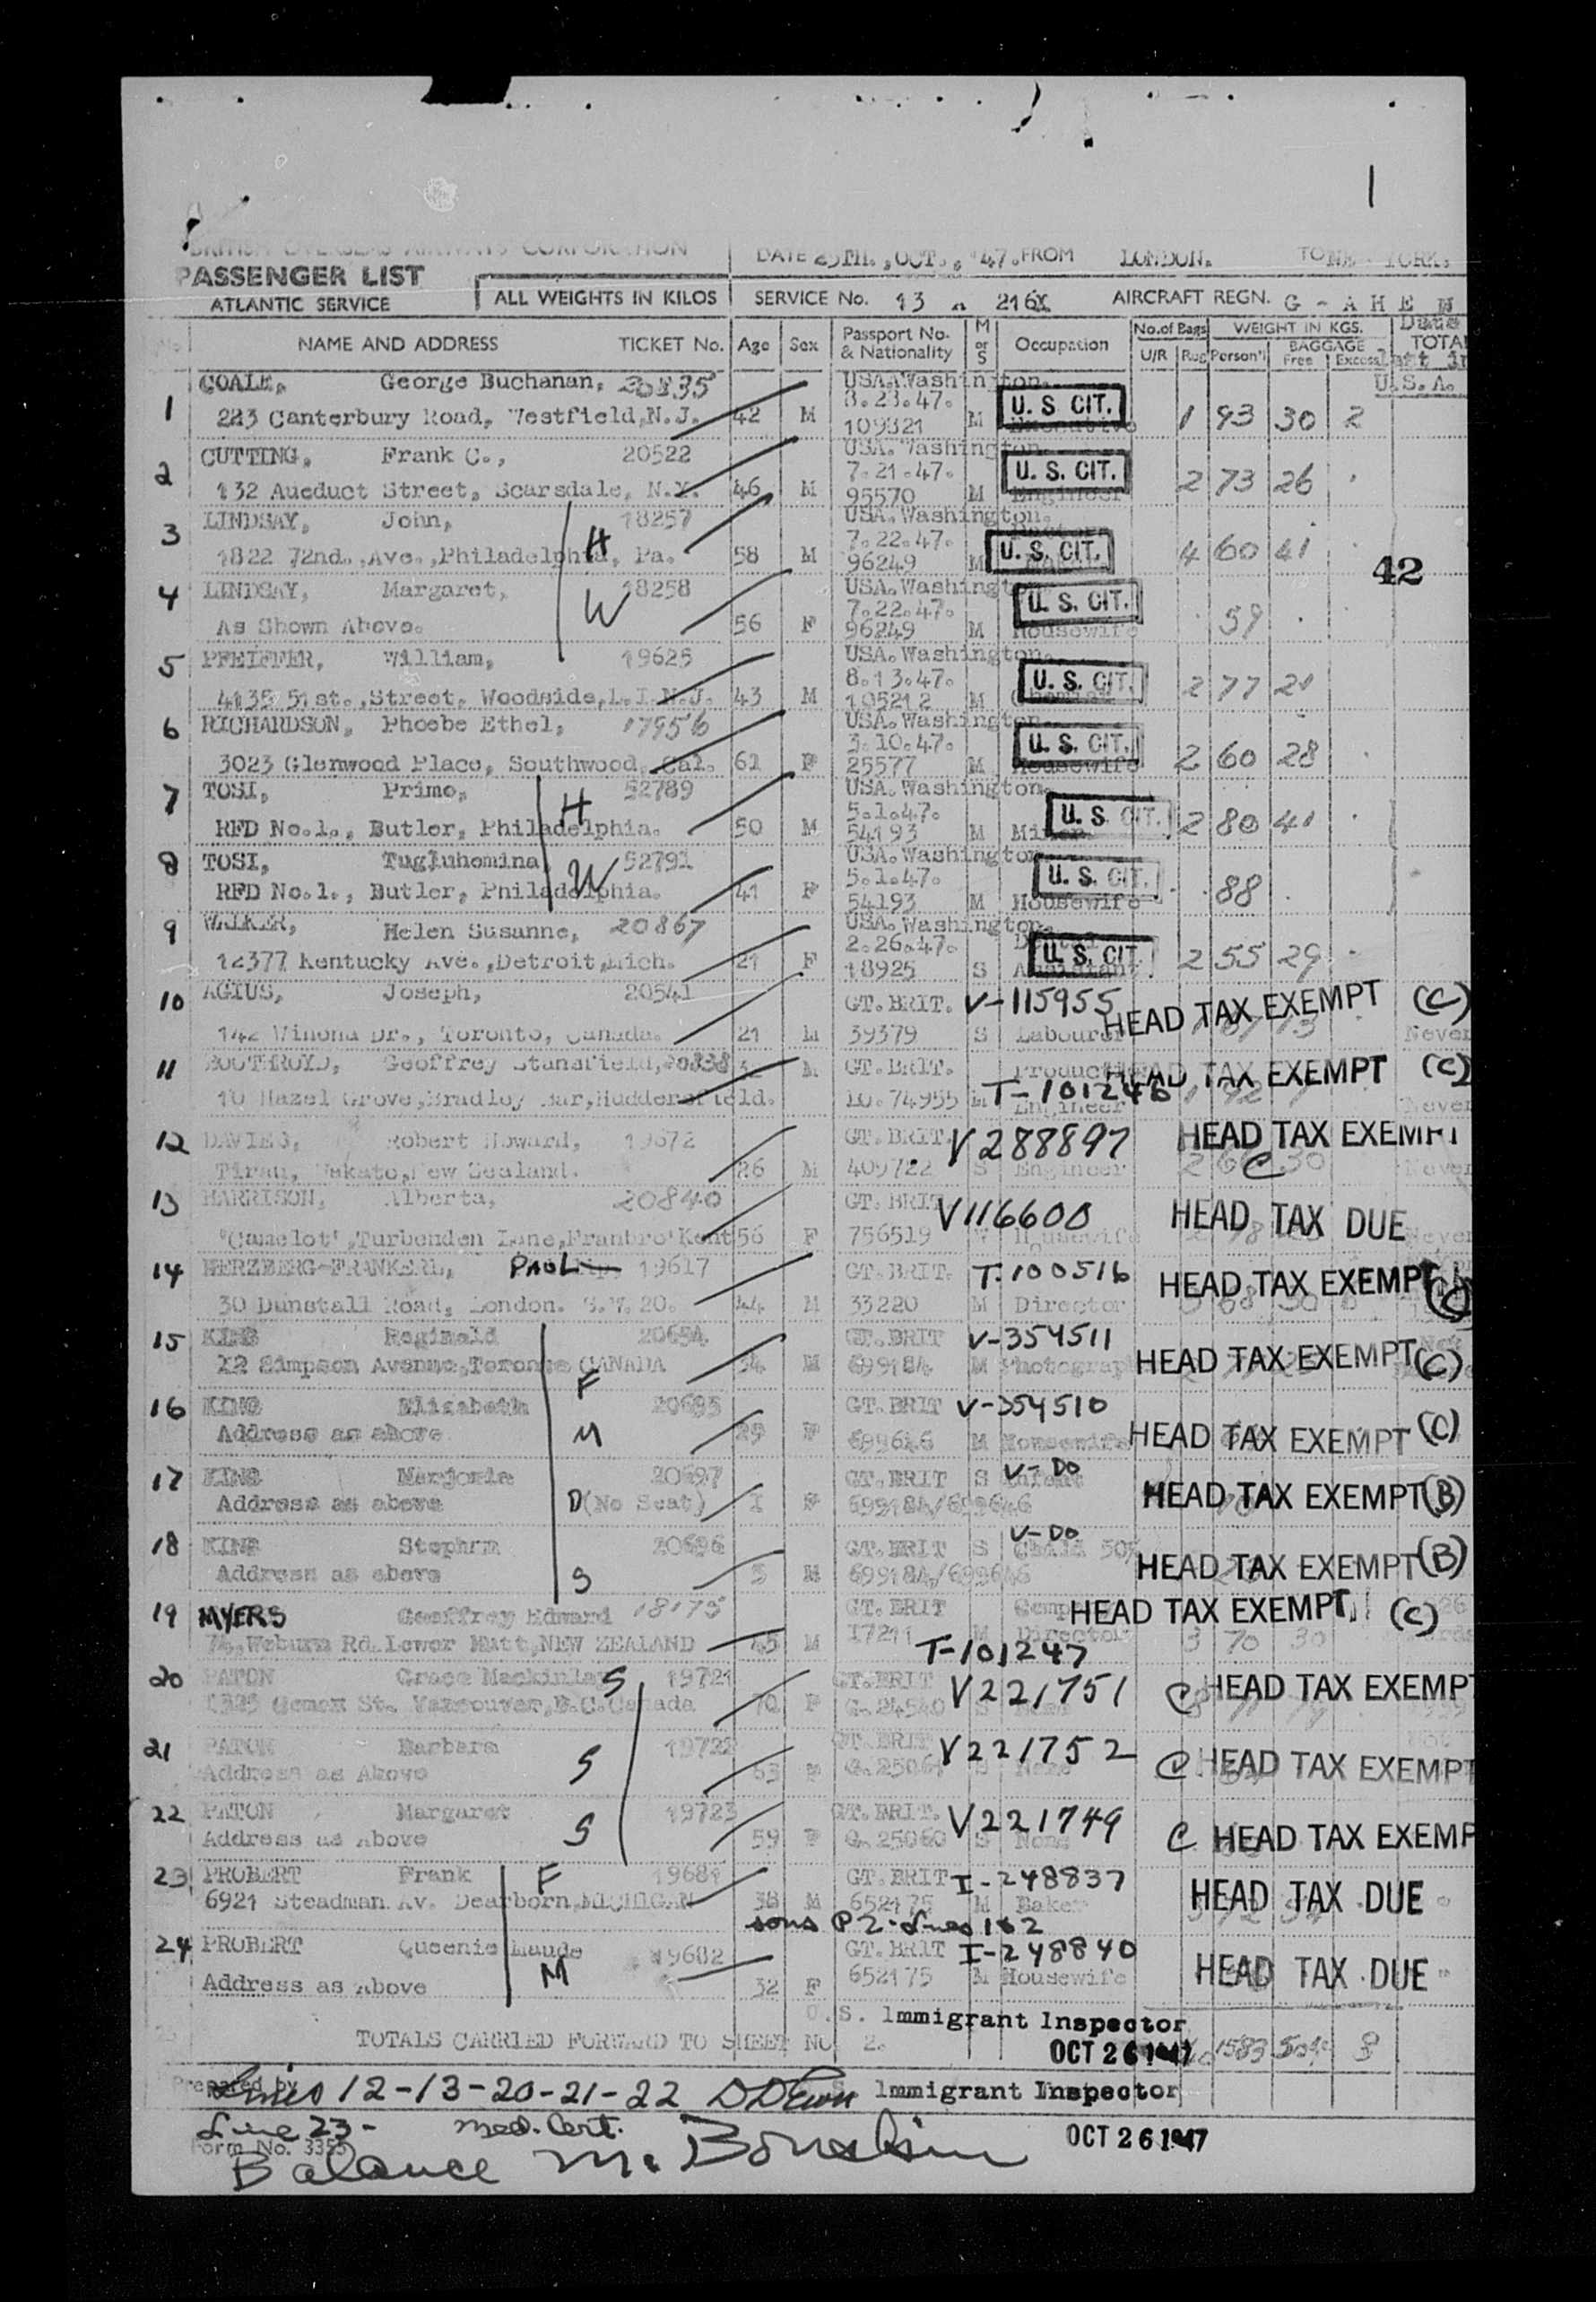 1
BRITISH OVERSEAS AIRWAYS CORPORATION
DATE 25TH.,OCT., '47. FROM LONDON. TO NEW YORK.
PASSENGER LIST
ATLANTIC SERVICE
ALL WEIGHTS IN KILOS
SERVICE No. 13 216 AIRCRAFT REGN. G - A H E
NAME AND ADDRESS TICKET No. Age Sex Passport No. & Nationality M or S Occupation No. of Bags U/R Rug WEIGHT IN KGS. Person'l BAGGAGE Free Excess TOTAL Date last in U.S.A.
1 COALE, George Buchanan, USA.Washington.
223 Canterbury Road, Westfield,N.J. 42 M 8.23.47. 109321 M U. S. CIT. 1 93 30 2
2 CUTTING, Frank C., 20522 USA.Washington
132 Aueduct Street, Scarsdale, N.Y. 46 M 7.21.47. 95570 M Engineer U. S. CIT. 2 73 26
3 LINDSAY, John, 18257 USA.Washington.
1822 72nd.,Ave.,Philadelphia, Pa. H 58 M 7.22.47. 96249 M U. S. CIT. 4 60 41
42
4 LINDSAY, Margaret, 18258 USA.Washington
As Shown Above. W 56 F 7.22.47. 96249 M Housewife U. S. CIT. 59
5 PFEIFFER, William, 19625 USA.Washington.
4135 51st.,Street, Woodside,L.I.N.J. 43 M 8.13.47. 105212 M U. S. CIT. 2 77 21
6 RICHARDSON, Phoebe Ethel, 17956 USA.Washington
3023 Glenwood Place, Southwood, Cal. 61 F 3.10.47. 25577 M Housewife U. S. CIT. 2 60 28
7 TOSI, Primo, 52789 USA.Washington.
RFD No.1., Butler, Philadelphia. H 50 M 5.1.47. 54193 M Miner U. S. CIT. 2 80 41
8 TOSI, Tugluhomina 52791 USA.Washington
RFD No.1., Butler, Philadelphia. W 41 F 5.1.47. 54193 M Housewife U. S. CIT. 88
9 WALKER, Helen Susanne, 20867 USA.Washington.
12377 Kentucky Ave.,Detroit,Mich. 21 F 2.26.47. 18925 S Dental Assistant U. S. CIT. 2 55 29
10 AGIUS, Joseph, 20541 GT.BRIT. V-115955 HEAD TAX EXEMPT (C)
142 Winona Dr., Toronto, Canada. 21 M 39379 S Labourer Never
11 BOOTHROYD, Geoffrey Stansfield, 20838 32 M GT.BRIT. Production HEAD TAX EXEMPT (C)
10 Hazel Grove,Bradley Bar,Huddersfield. LO.74955 M Engineer T-101246 Never
12 DAVIES, Robert Howard, 19672 GT.BRIT. V288897 HEAD TAX EXEMPT
Tirau, Wakato,New Zealand. 26 M 409722 S Engineer C 30 Never
13 HARRISON, Alberta, 20840 GT.BRIT V116600 HEAD TAX DUE
"Camelot",Turbenden Lane,Franbro'Kent 56 F 756519 Housewife Never
14 HERZBERG-FRANKERL, PAUL 19617 GT.BRIT. T-100516 HEAD TAX EXEMPT (C)
30 Dunstall Road, London. S.W.20. 44 M 33220 M Director
15 KING Reginald 20694 GT.BRIT V-354511
12 Simpson Avenue,Toronto CANADA F 34 M 69918A M Photograph HEAD TAX EXEMPT (C)
16 KING Elizabeth 20695 GT.BRIT V-354510
Address as above M 29 F 699646 M Housewife HEAD TAX EXEMPT (C)
17 KING Marjorie 20697 GT.BRIT S Infant V-DO
Address as above D (No Seat) 1 F 69918A/699646 HEAD TAX EXEMPT (B)
18 KING Stephen 20696 GT.BRIT S Child 50% V-DO
Address as above S M 69918A/699646 HEAD TAX EXEMPT (B)
19 MYERS Geoffrey Edward 18175 GT.BRIT HEAD TAX EXEMPT (C)
Woburn Rd.Lower Hutt,NEW ZEALAND 45 M 17211 M Director T-101247 3 70 30
20 PATON Grace Mackinlay S 19721 GT.BRIT V221751 C HEAD TAX EXEMPT
Comox St. Vancouver,B.C.Canada 70 F G.24540 S None
21 PATON Barbara 19722 GT.BRIT V221752
Address as Above S 63 F G.25061 S None C HEAD TAX EXEMPT
22 PATON Margaret 19723 GT.BRIT. V221749
Address as Above S 59 F G.25060 S None C HEAD TAX EXEMP
23 PROBERT Frank F 19681 GT.BRIT I-248837
6921 Steadman Av. Dearborn,MICHIGAN 38 M 652175 M Baker HEAD TAX DUE
sons P2-Lines 1&2
24 PROBERT Queenie Maude 19682 GT.BRIT I-248840
Address as Above M 32 F 652175 M Housewife HEAD TAX DUE
U.S. Immigrant Inspector
TOTALS CARRIED FORWARD TO SHEET NO 2. OCT 26 1947 1583
Prepared by
Lines 12-13-20-21-22 Immigrant Inspector
Line 23- Med. Cert. OCT 26 1947
Form No. 335
Balance